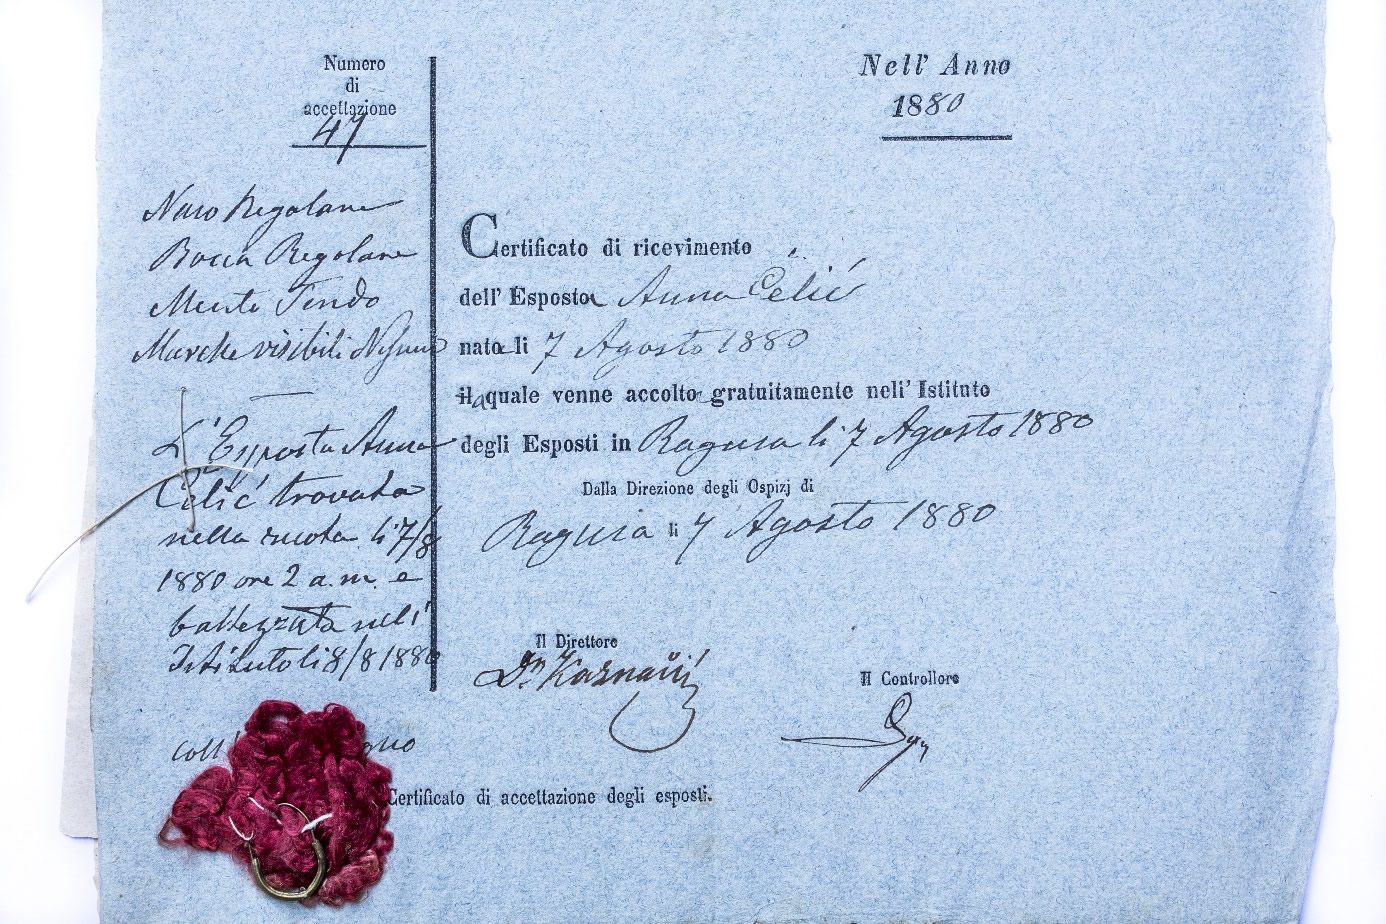 Numero
di
accettazione
47
Nell' Anno
1880
Naso Regolare
Bocca Regolare
Mento Tondo
Marche visibili Nessuno
L'Esposta Anna
Celić trovata
nella ruota li 7/8
1880 ore 2 a.m. e
battezzata nell'
Istituto li 8/8 1880
coll'
Certificato di ricevimento
dell' Esposta Anna Celić
nata li 7 Agosto 1880
la quale venne accolta gratuitamente nell' Istituto
degli Esposti in Ragusa li 7 Agosto 1880
Dalla Direzione degli Ospizj di
Ragusa li 7 Agosto 1880
Il Direttore
Dr. Kaznačić
Il Controllore
Certificato di accettazione degli esposti.